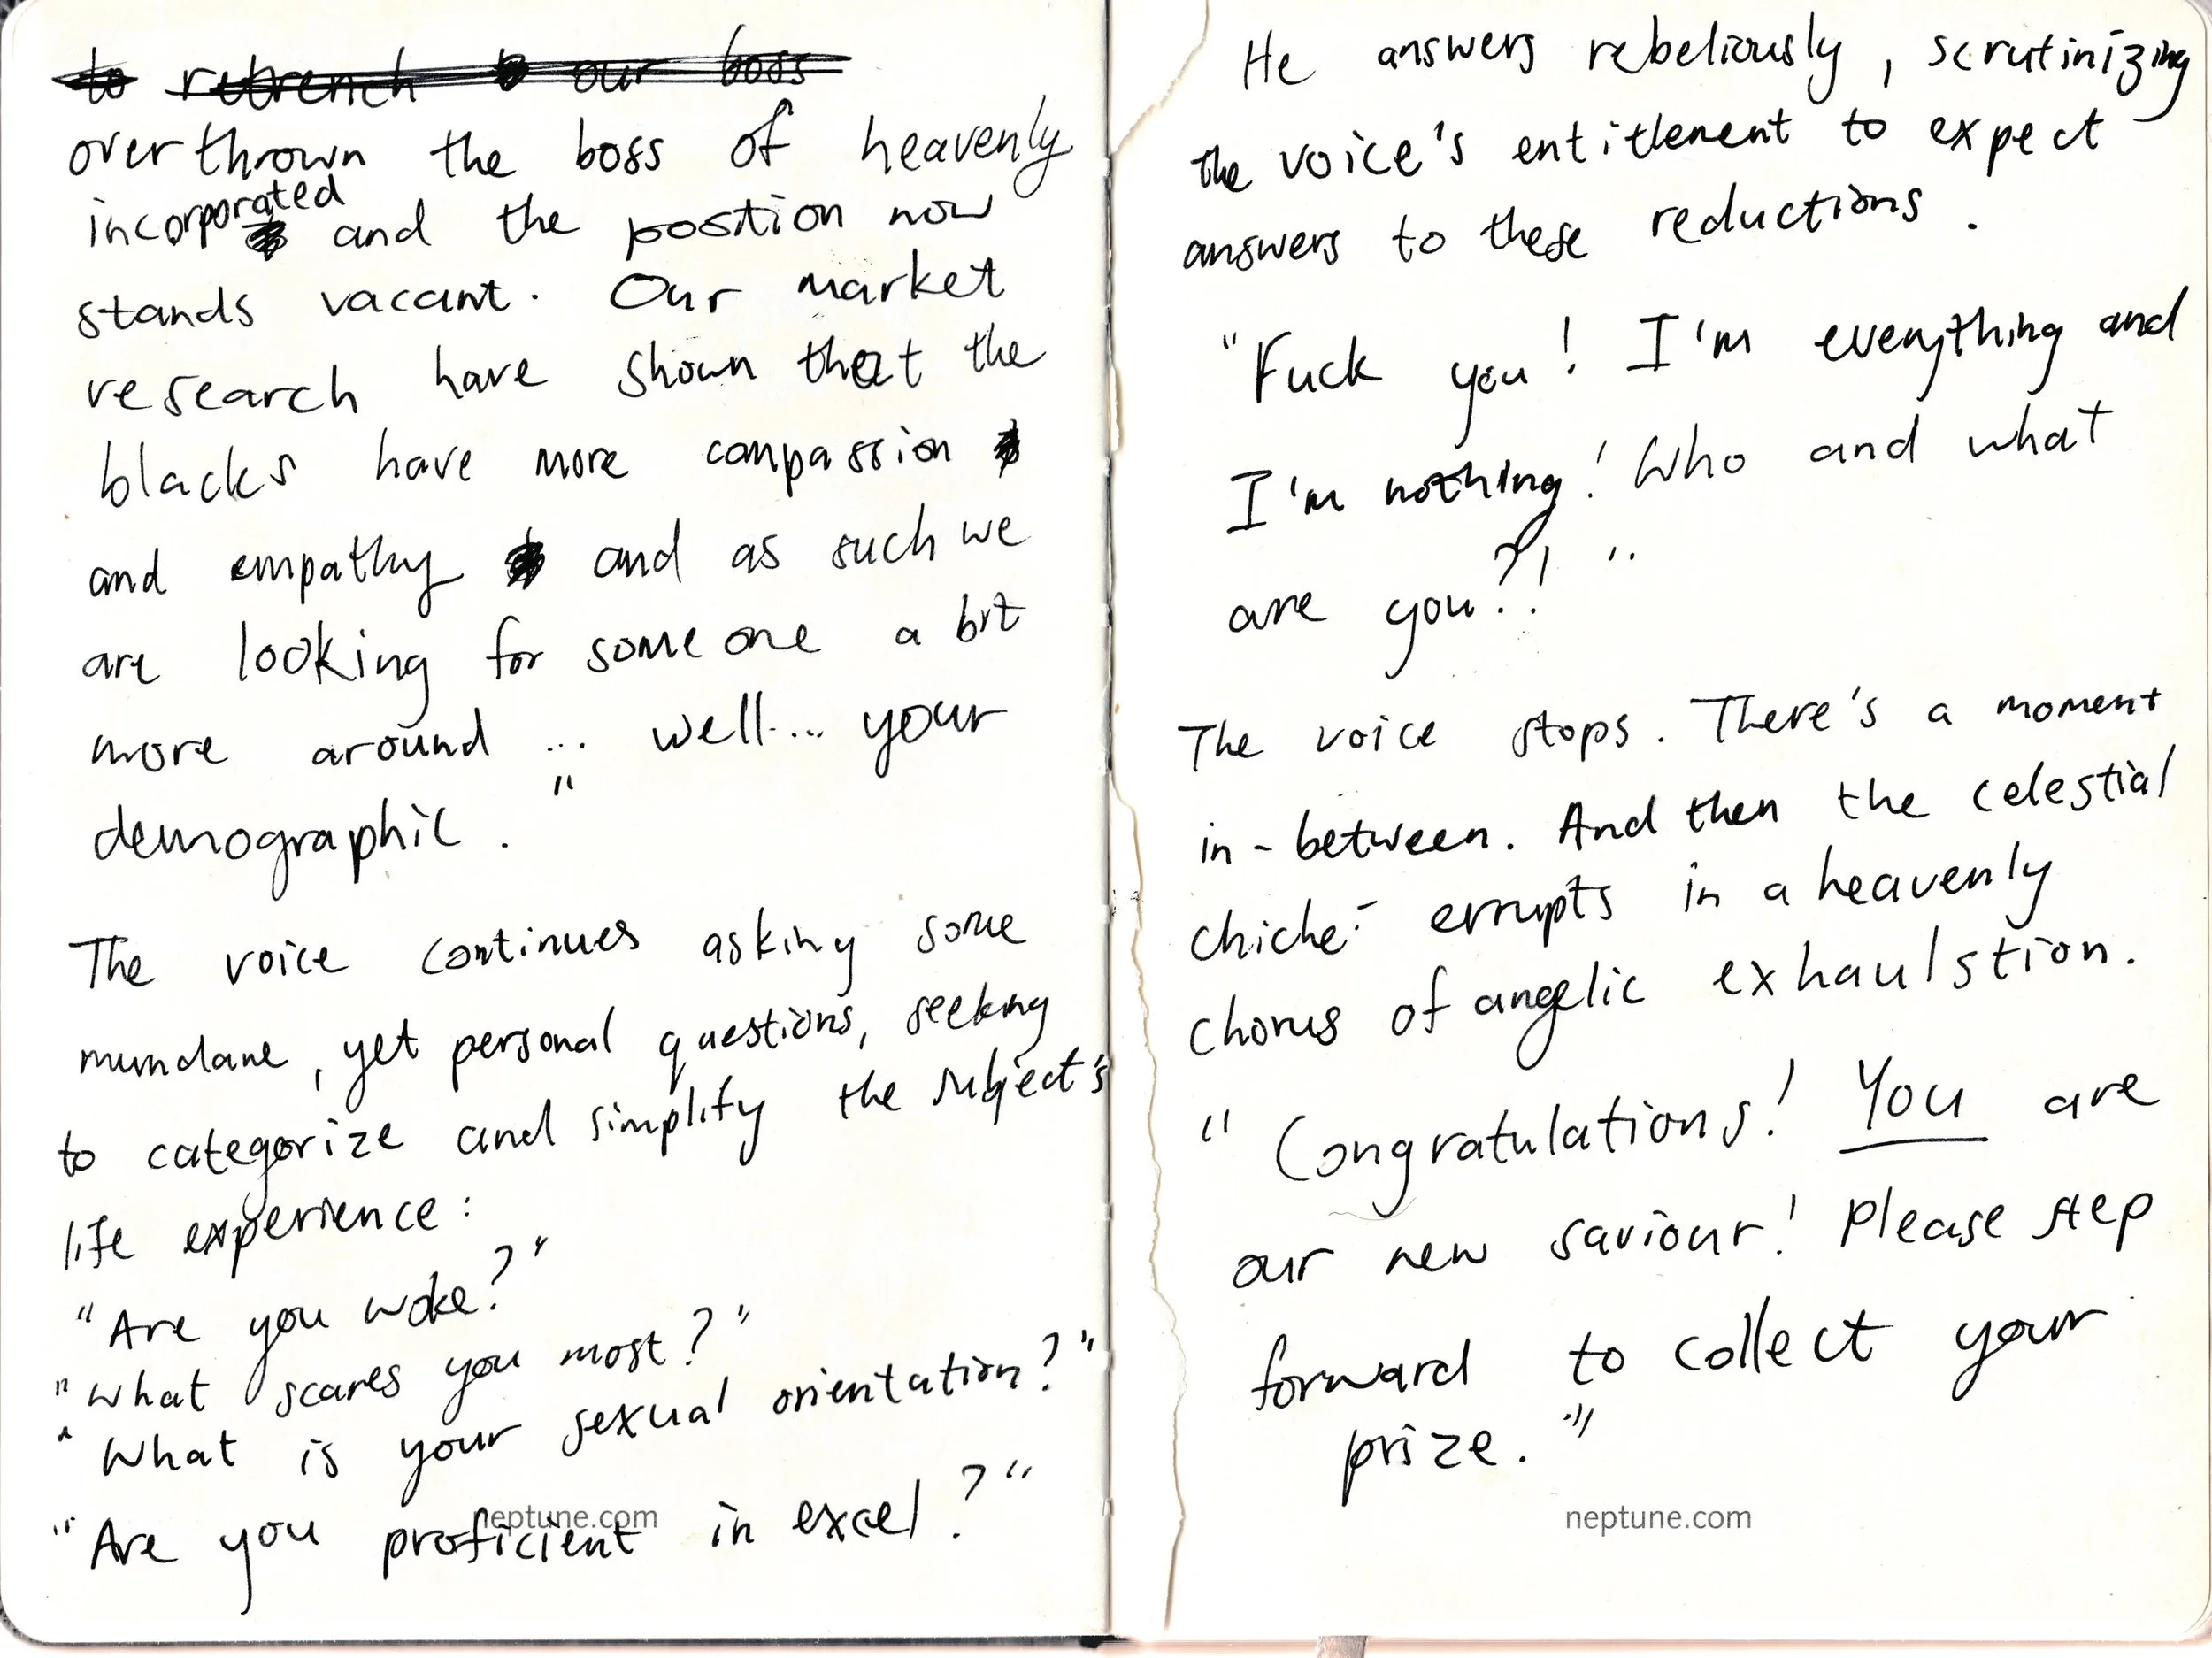 to retrench our boss
overthrown the boss of heavenly
incorporated and the postion now
stands vacant. Our market
research have shown that the
blacks have more compassion
and empathy and as such we
are looking for someone a bit
more around ... well... your
demographic."
The voice continues asking some
mundane, yet personal questions, seeking
to categorize and simplify the subject's
life experience:
"Are you woke?"
"What scares you most?"
"What is your sexual orientation?"
"Are you proficient in excel?"
neptune.com
He answers rebeliously, scrutinizing
the voice's entitlement to expect
answers to these reductions.
"Fuck you! I'm everything and
I'm nothing! Who and what
are you?!"
The voice stops. There's a moment
in-between. And then the celestial
chiché errupts in a heavenly
chorus of angelic exhaulstion.
"Congratulations! You are
our new saviour! Please step
forward to collect your
prize."
neptune.com